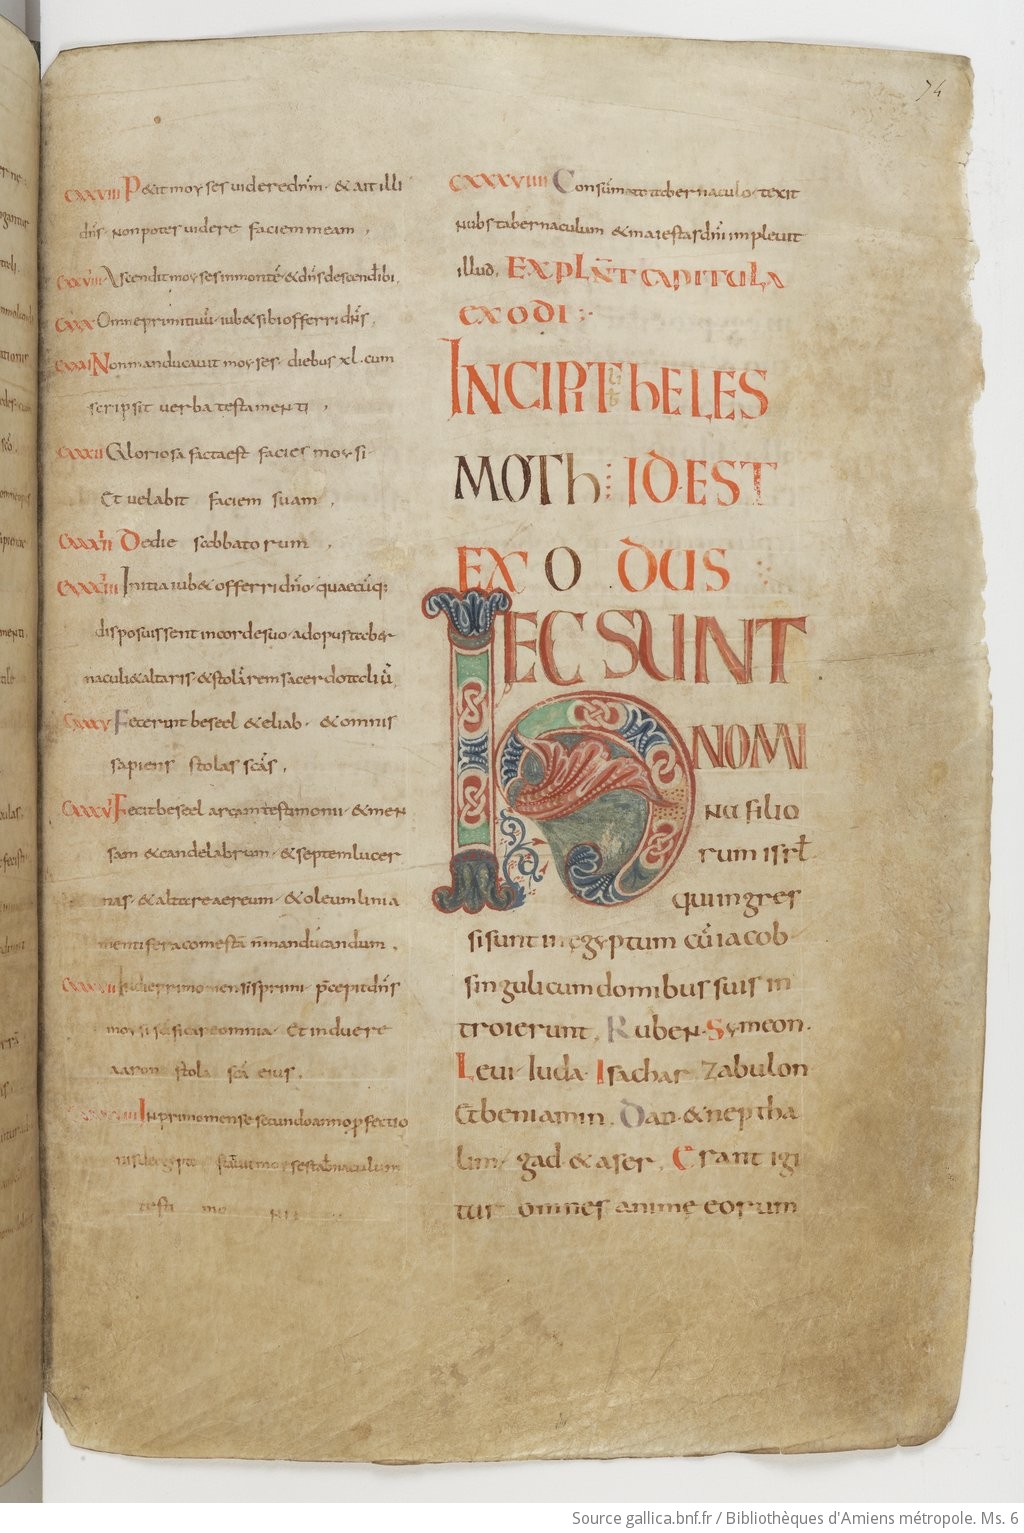 74
CXXXVIII Petit moyses videre dnm · & ait illi
dns · non potes videre faciem meam ,
CXXVIIII Ascendit moyses in monte · & dns descend ibi ,
CXXX Omne primitiuu · iub& sibi offerri dns ,
CXXXI Non manducauit moyses · diebus xl · cum
scripsit verba testamenti ,
CXXXII Gloriosa facta est facies moysi ·
Et velabit faciem suam ,
CXXXIII De die sabbatorum ,
CXXXIIII Initia iub& offerri dno · quaecuq;
disposuissent in corde suo · ad opus taber
naculi & altaris & stolarem sacerdotaliu ,
CXXXV Fecerunt beseel & eliab · & omnis
sapiens stolas scas ,
CXXXVI Fecit beseel arcam testimonii · & men
sam & candelabrum · & septem lucer
nas · & altare aereum · & oleum linia
menti fera comesta n manducandum ,
In die primo mensis primi · pcepit dns
moysi scificare omnia · Et induere
aaron stola sca eius ,
In primo mense secundo anno pfectio
nis de egypto statuit moyses tabnaculum
testi mo nii
CXXXVIIII Consumato tabernaculo · texit
nubs tabernaculum & maiestas dni impleuit
illud , EXPLNT CAPITULA
EXODI :·
INCIPIT HELES
MOTH : ID EST
EX O DUS
HEC SUNT
NOMI
NA filio
rum isrl
qui ingres
si sunt in egyptum cu iacob
singuli cum domibus suis in
troierunt , Ruben · Symeon ·
Leui · Iuda · Isachar Zabulon
Et beniamin , Dan · & neptha
lim · gad · & aser , Erant igi
tur omnes anime eorum
Source gallica.bnf.fr / Bibliothèques d'Amiens métropole. Ms. 6